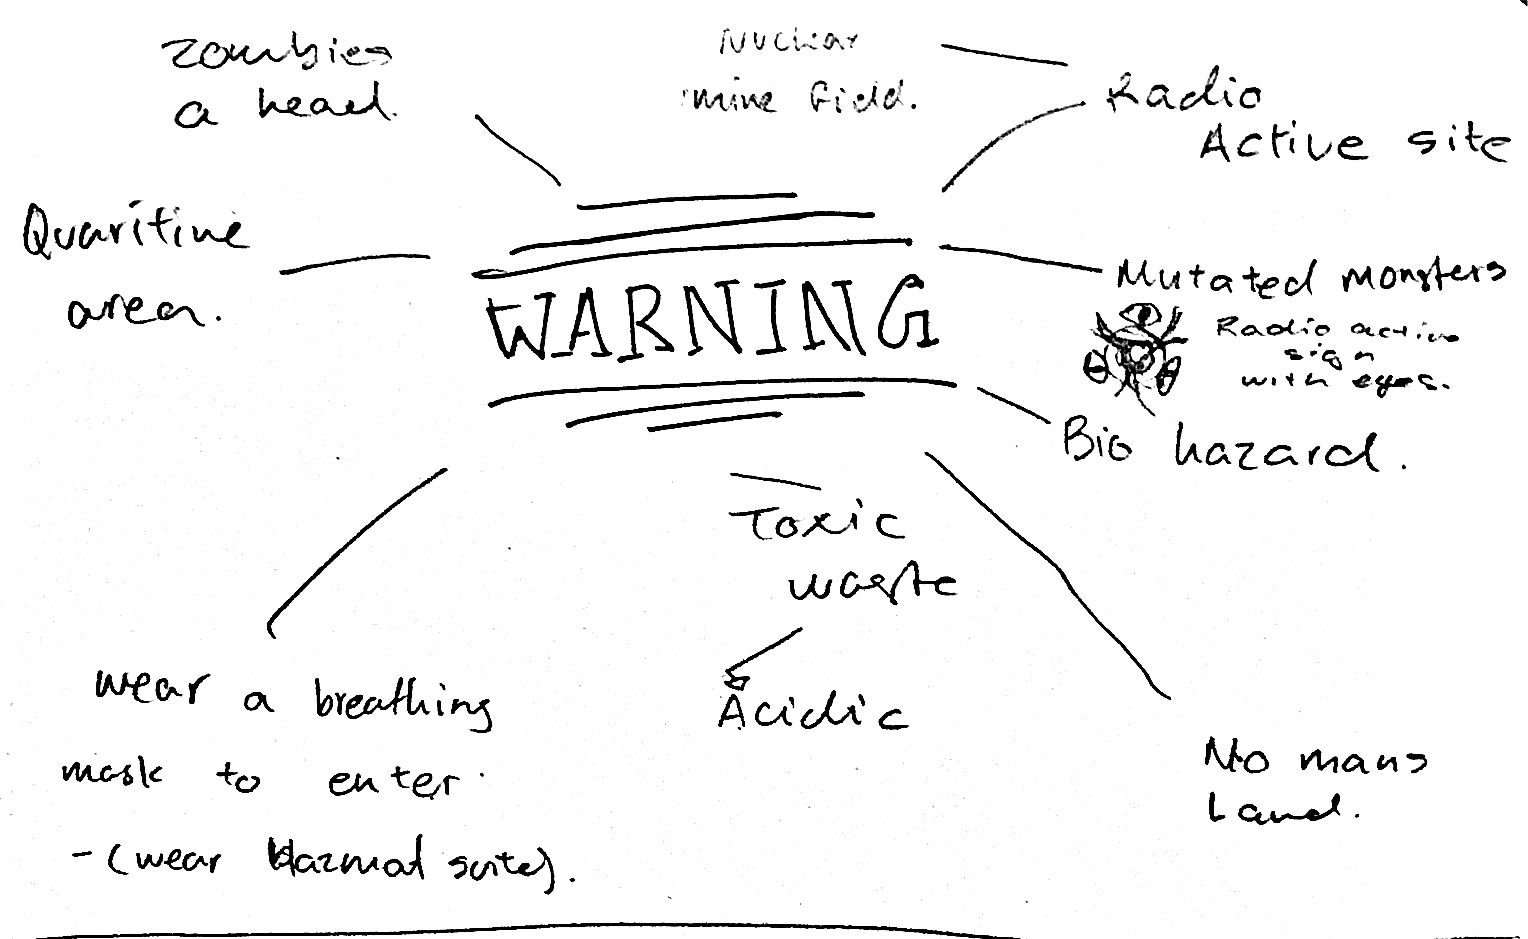 zombies
a head.
Nuclear
mine field.
Radio
Active site
Quaritine
area.
WARNING
Mutated monsters
Radio active
sign
with eyes.
Bio hazard.
Toxic
waste
Acidic
wear a breathing
mask to enter.
-(wear Hazmat suite).
No mans
Land.